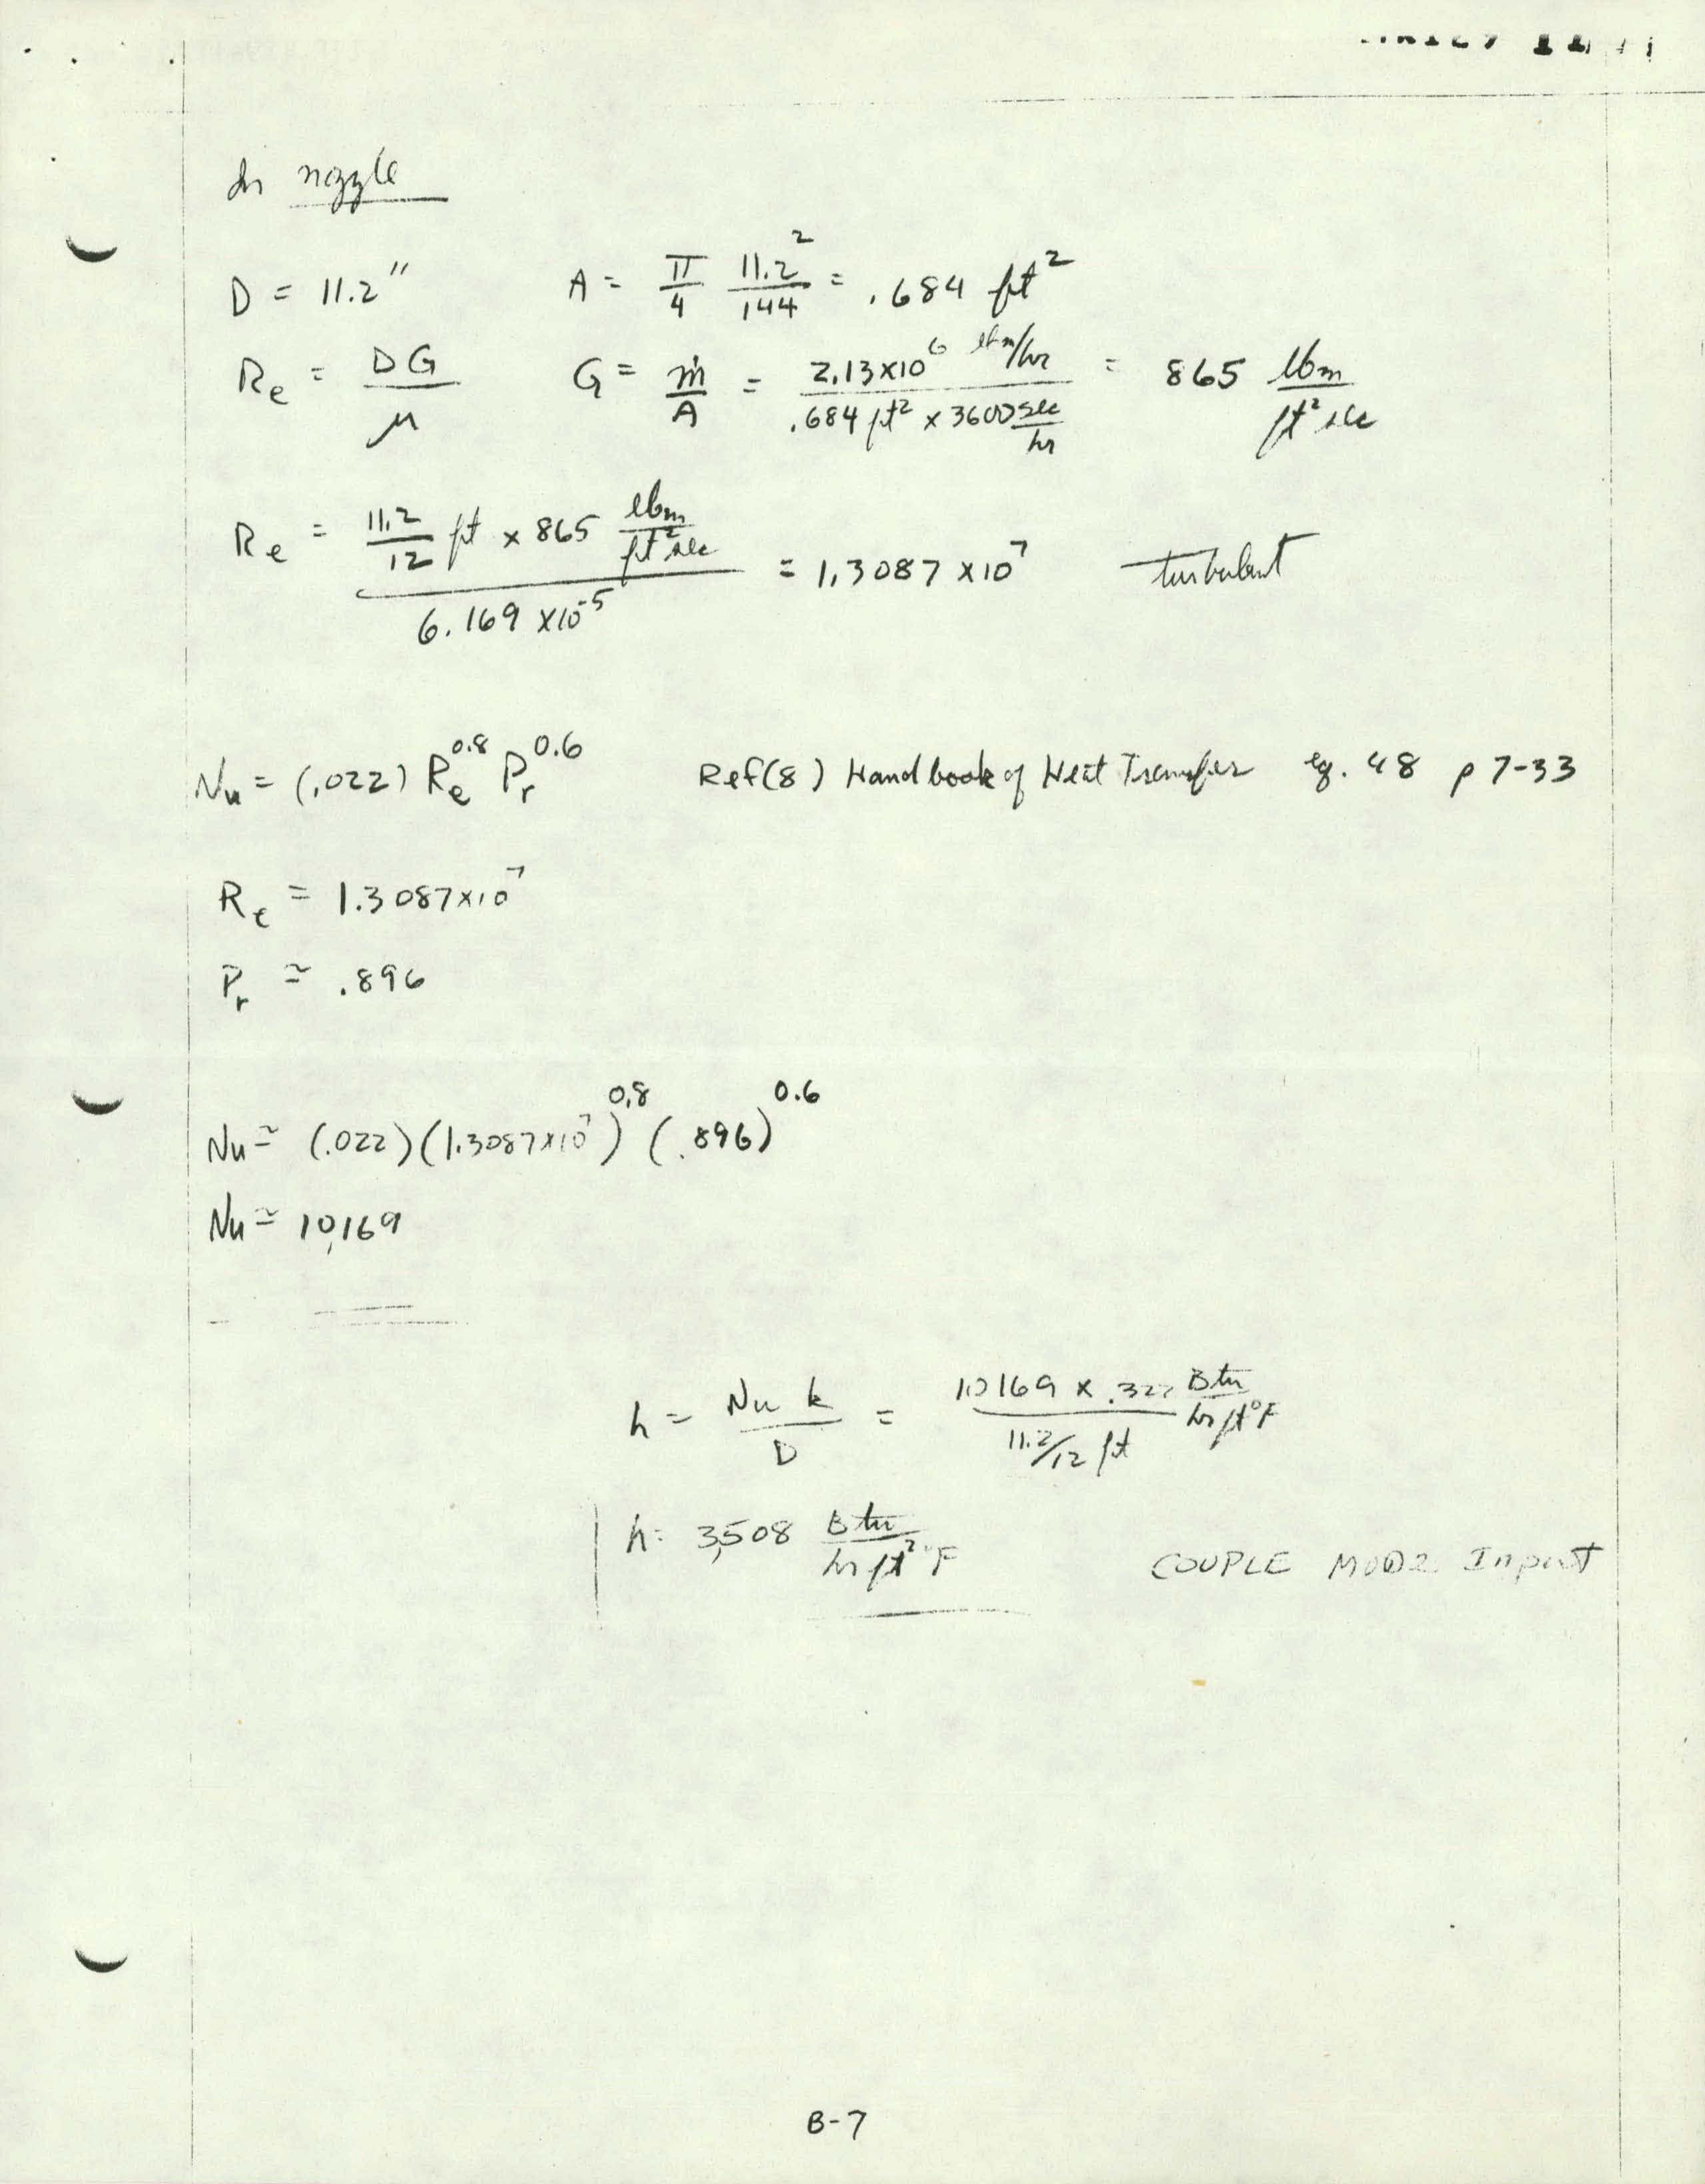 In nozzle
D = 11.2" A = π/4 11.2²/144 = .684 ft²
Re = DG/μ G = ṁ/A = 2.13x10⁶ lbm/hr / .684 ft² x 3600 sec/hr = 865 lbm/ft² sec
Re = 11.2/12 ft x 865 lbm/ft² sec / 6.169 x10⁻⁵ = 1.3087 x10⁷ turbulent
Nu = (.022) Re^0.8 Pr^0.6 Ref(8) Handbook of Heat Transfer eq. 48 p 7-33
Re = 1.3087x10⁷
Pr ≃ .896
Nu ≃ (.022)(1.3087x10⁷)^0.8 (.896)^0.6
Nu ≃ 10,169
h = Nu k/D = 10169 x .322 Btu/hr ft°F / 11.2/12 ft
h = 3,508 Btu/hr ft² °F COUPLE MOD2 Input
B-7